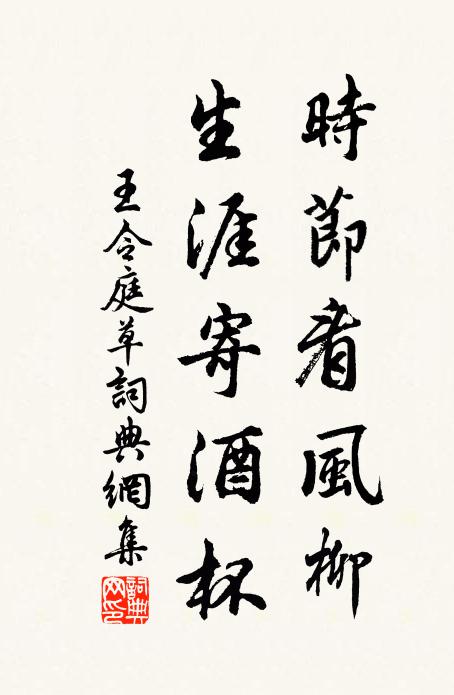 時節看風柳
生涯寄酒杯
王令庭草詞典網集
詞典网印